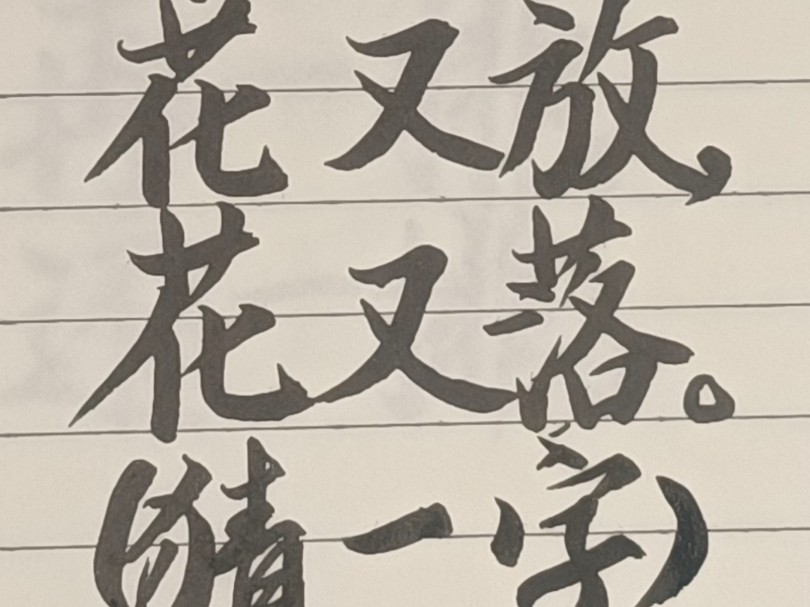 花又放，
花又落。
(猜一字)